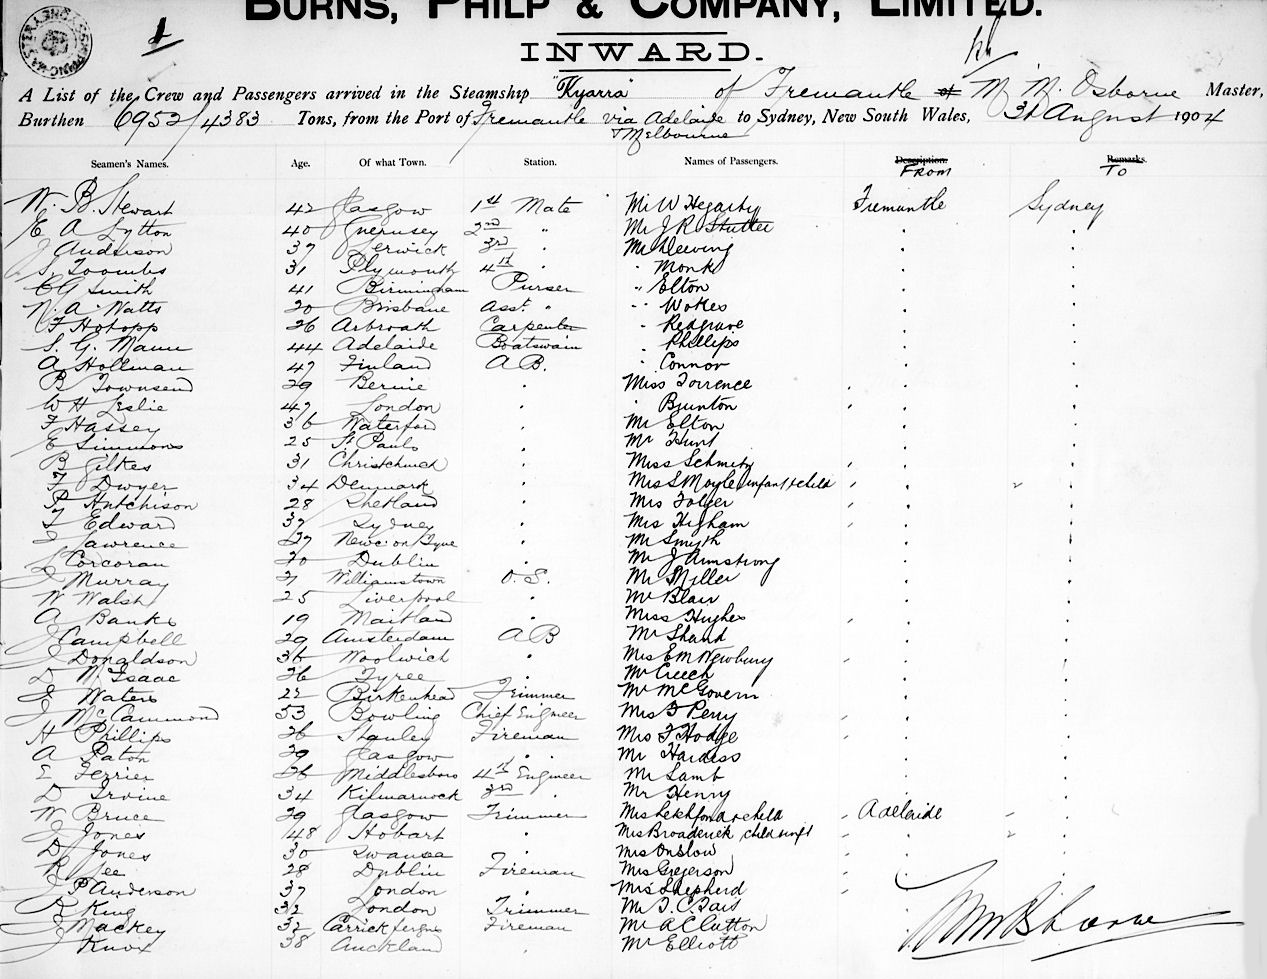 BURNS, PHILP & COMPANY, LIMITED.
INWARD.
A List of the Crew and Passengers arrived in the Steamship "Kyarra" of Fremantle M M. Osborne Master,
Burthen 6952/4383 Tons, from the Port of Fremantle via Adelaide to Sydney, New South Wales, 31 August 1904
+ Melbourne
Seamen's Names. Age. Of what Town. Station. Names of Passengers. Description. Remarks.
FROM TO
W. B. Stewart 42 Glasgow 1st Mate Mr W Hegarty Fremantle Sydney
E A Lytton 40 Guernsey 2nd " Mr J R Stutter
J Anderson 37 Lerwick 3rd " Mr Deeving
S. Toombs 31 Plymouth 4th " " Monk
C G Smith 41 Birmingham Purser " Elton
N. A Watts 20 Brisbane Asst. " " Wokes
F Hotopp 26 Arbroath Carpenter " Redgrave
S. G. Mann 44 Adelaide Boatswain " Phillips
A Hollman 47 Finland A B. " Connor
B Townsend 29 Bernie Miss Torrence
W H Leslie 47 London " Brunton
F Hassey 36 Waterford Mr Elton
E Simmons 25 St Pauls Mr Hunt
B Gilkes 31 Christchurch Miss Schmitz
F Dwyer 34 Denmark Mrs S Moyle infant & child
P Hutchison 28 Shetland Mrs Folger
T Edward 37 Sydney Mrs Higham
J Lawrence 27 Newc. on Tyne Mr Smyth
L Corcoran 20 Dublin Mr J Armstrong
J Murray 21 Williamstown O. S. Mr Miller
W Walsh 25 Liverpool Mr Blair
A Banks 19 Maitland Miss Hughes
J Campbell 29 Amsterdam A B Mr Shand
J Donaldson 36 Woolwich Mrs E M Newbury
D N. Isaac 26 Tyree Mr Creech
J Waters 22 Birkenhead Trimmer Mr McGovern
J McCammond 53 Bowling Chief Engineer Mrs F Perry
H Phillips 26 Stanley Fireman Mrs F Hodge
A Paton 29 Glasgow Mr Hardiss
E Ferrier 26 Middlesboro 4th Engineer Mr Lamb
D Irvine 34 Kilmarnock 3rd " Mr Henry
W Bruce 29 Glasgow Trimmer Mrs Letchford & child Adelaide
J Jones 48 Hobart Mrs Broaderick child & inft
D Jones 30 Swansea Mrs Onslow
R Lee 28 Dublin Fireman Mrs Gregerson
J P Anderson 37 London Mrs Shepherd
R King 32 London Trimmer Mr T. C. Tait
J Mackey 32 Carrickfergus Fireman Mr A C Clutton
J Knox 38 Auckland Mr Elliott